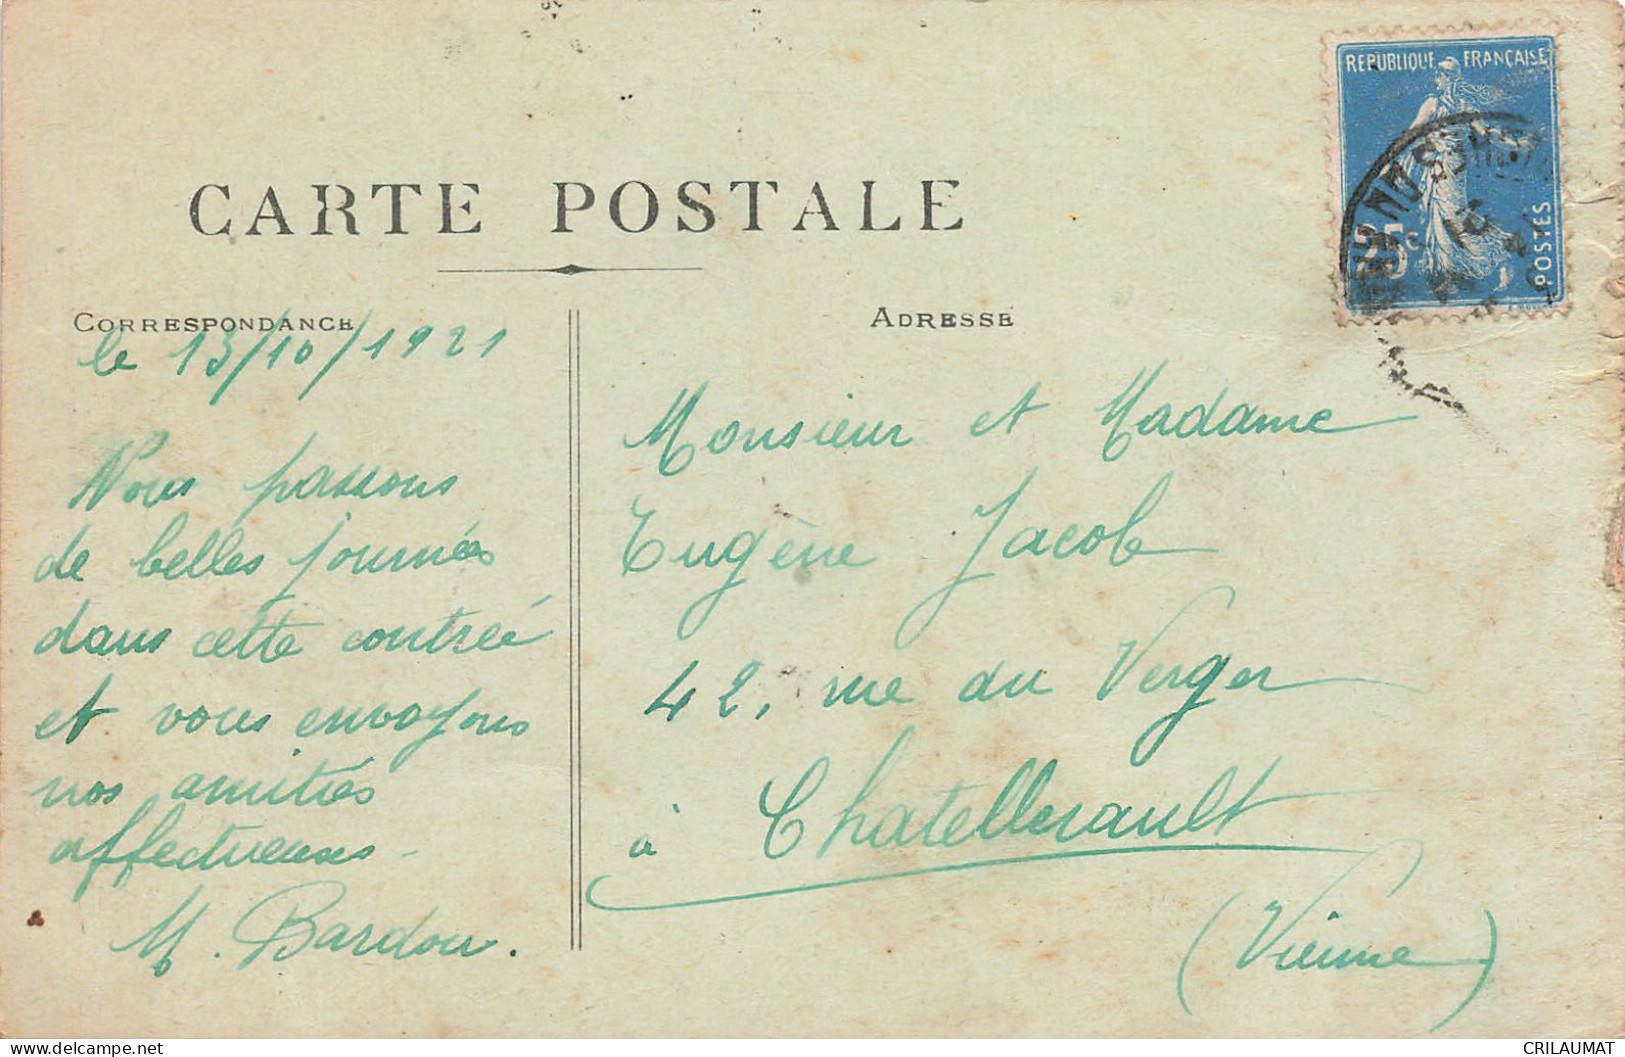 CARTE POSTALE
CORRESPONDANCE
ADRESSE
REPUBLIQUE FRANÇAISE
25c
POSTES
le 13/10/1921
Nous passons
de belles journées
dans cette contrée
et vous envoyons
nos amitiés
affectueuses -
M. Bardou.
Monsieur et Madame
Eugène Jacob
42, rue du Verger
à Chatellerault
(Vienne)
CRILAUMAT